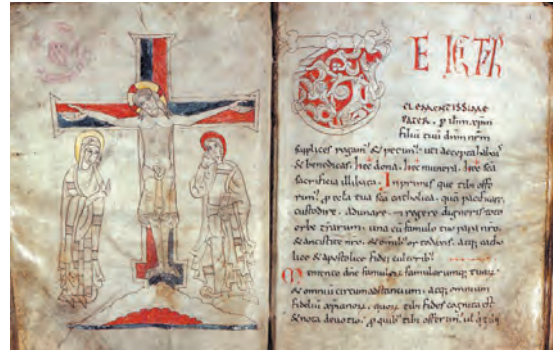 TE IGITR
CLEMENTISSIME
PATER, p ihm xpm
filiū tuū dnm nrm
supplices rogam' & petim' uti accepta habeas
& benedicas. hec dona. hec munera. hec sca
sacrificia illibata. In primis que tibi offe
rim' p ecla tua sca catholica. quā pacificare.
custodire. adunare. & regere digneris toto
orbe trarum. una cū famulo tuo papa nro.
& antistite nro. & omib' ortodoxis. atq; catho
lice & apostolice fidei cultorib'
Memento dne famulor famularumq; tuar
& omniū circum adstantium. atq; omnium
fideliū xpianor. quor tibi fides cognita est
& nota devotio. p quib' tibi offerim'. ul q tibi